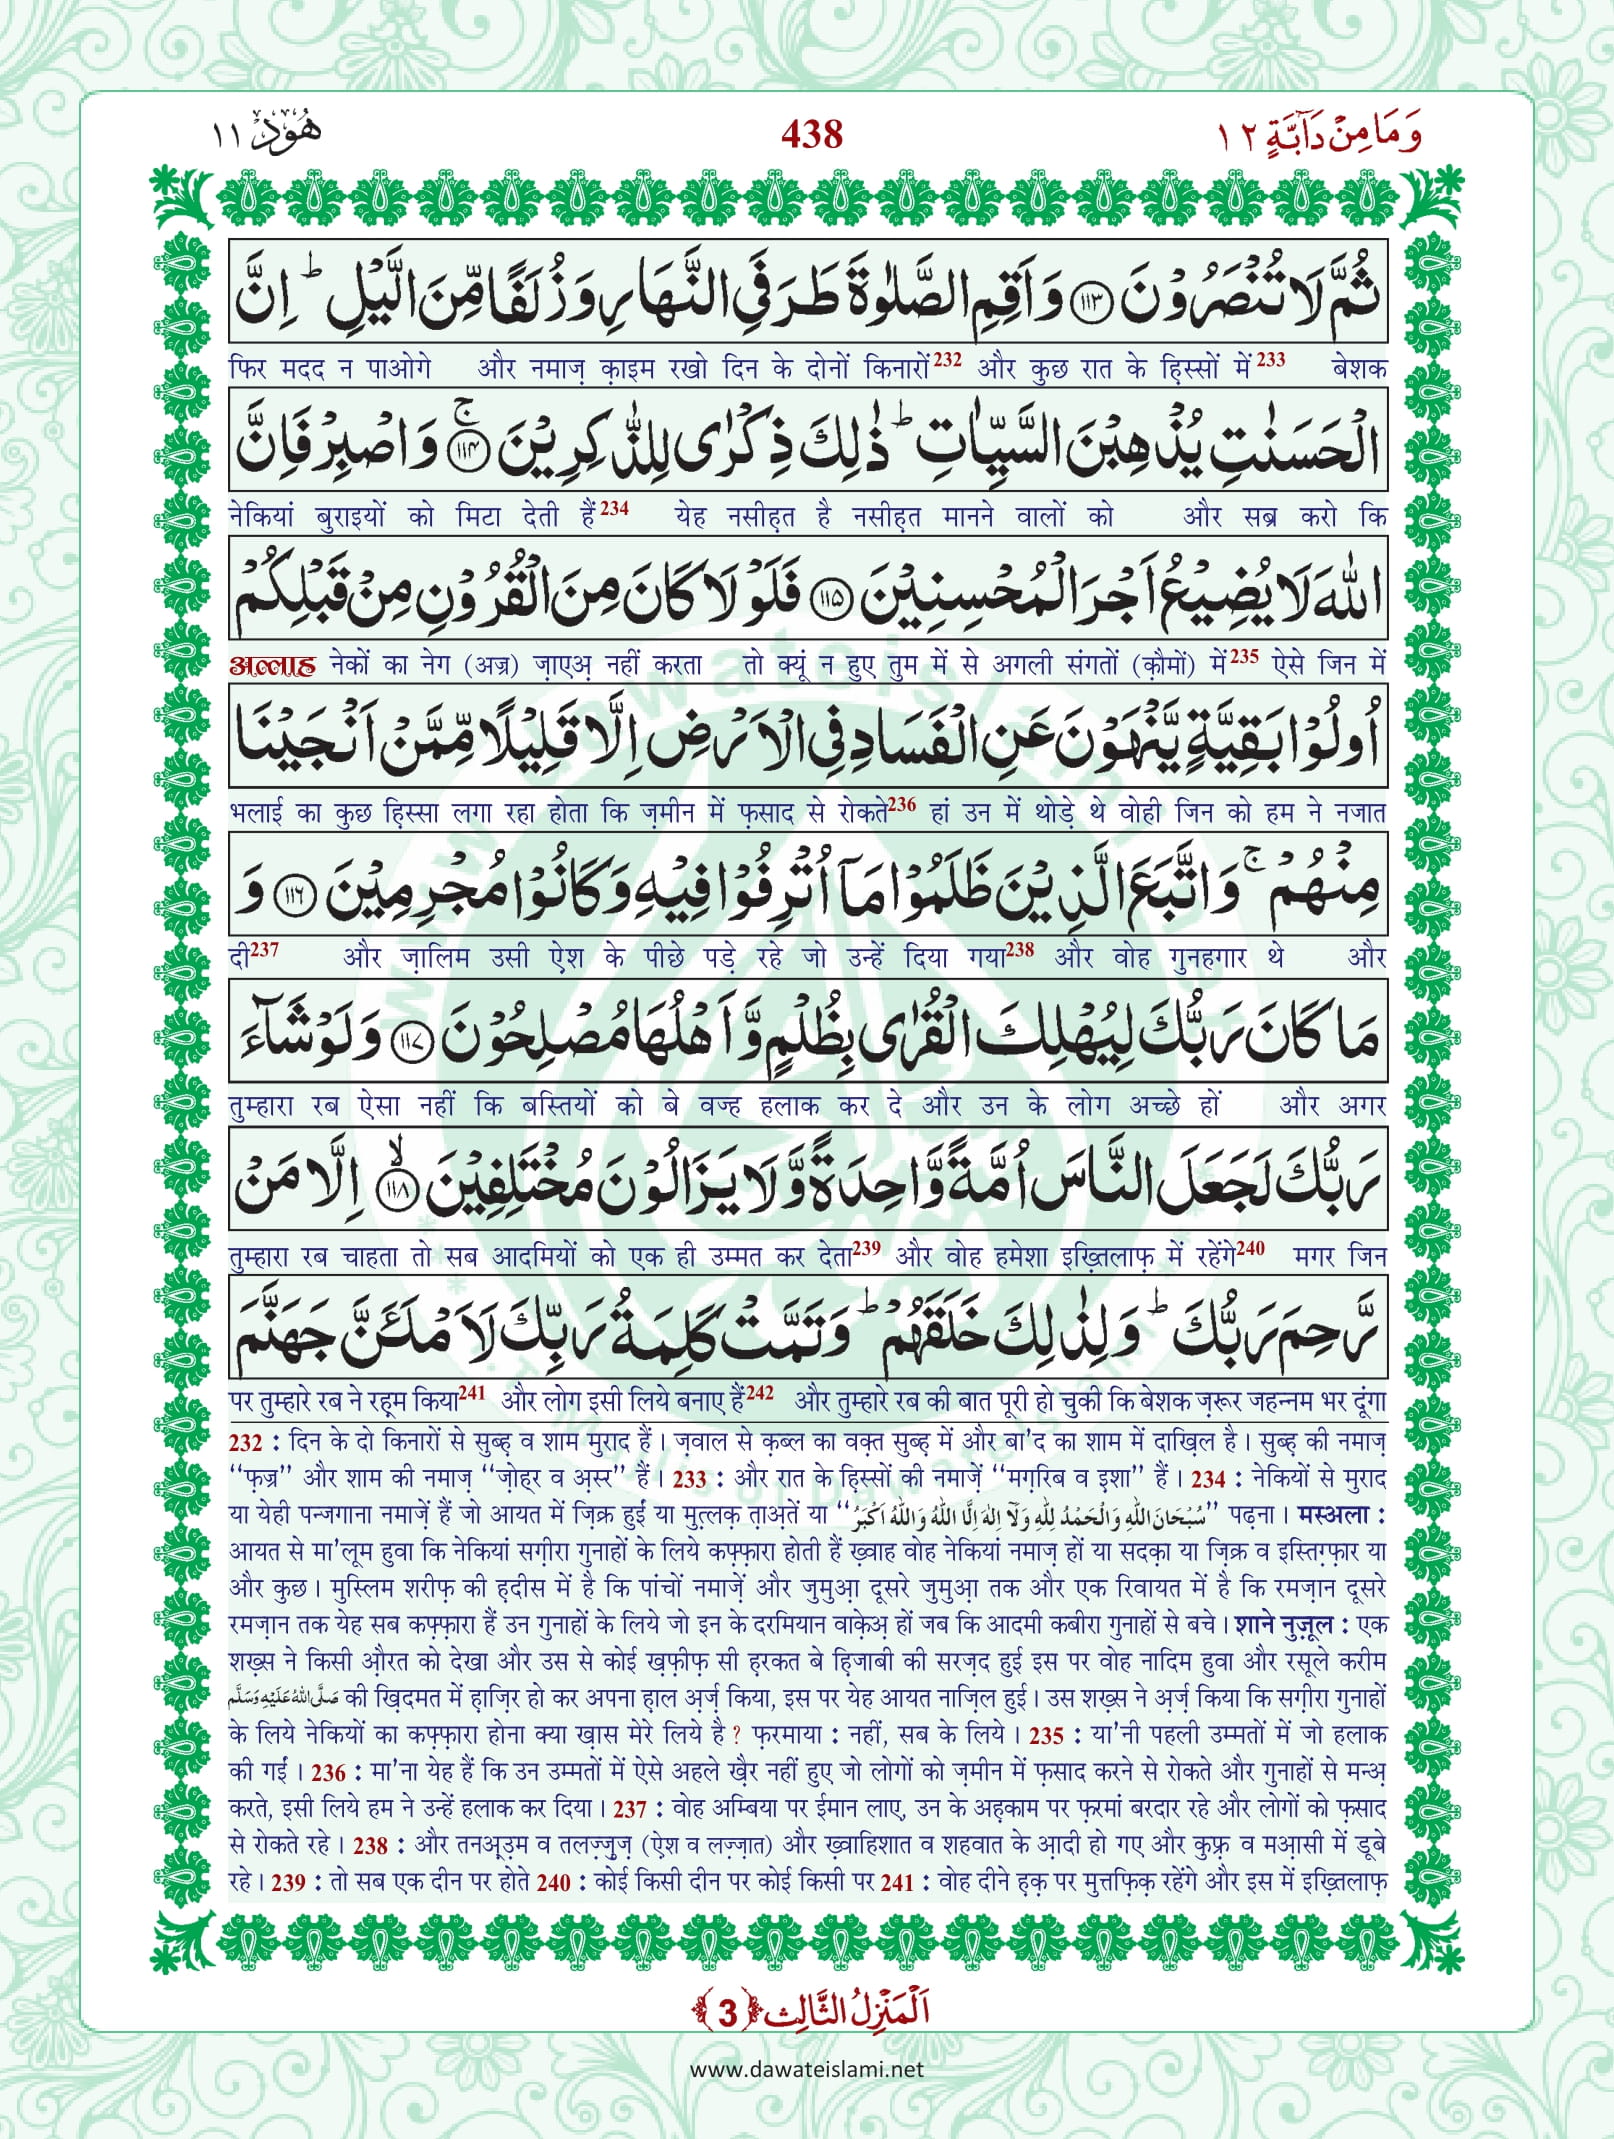 وَمَا مِنْ دَآبَّةٍ ١٢
438
هُوْد ١١
ثُمَّ لَا تُنْصَرُوْنَ ﴿١١٣﴾ وَاَقِمِ الصَّلٰوةَ طَرَفَیِ النَّهَارِ وَزُلَفًا مِّنَ الَّیْلِ ؕ اِنَّ
फिर मदद न पाओगे और नमाज़ क़ाइम रखो दिन के दोनों किनारों232 और कुछ रात के हि़स्सों में233 बेशक
الْحَسَنٰتِ یُذْهِبْنَ السَّیِّاٰتِ ؕ ذٰلِكَ ذِكْرٰی لِلذّٰكِرِیْنَ ﴿١١٤﴾ ۚ وَاصْبِرْ فَاِنَّ
नेकियां बुराइयों को मिटा देती हैं234 येह नसीह़त है नसीह़त मानने वालों को और सब्र करो कि
اللّٰهَ لَا یُضِیْعُ اَجْرَ الْمُحْسِنِیْنَ ﴿١١٥﴾ فَلَوْ لَا كَانَ مِنَ الْقُرُوْنِ مِنْ قَبْلِكُمْ
अल्लाह नेकों का नेग (अज्र) ज़ाएअ़ नहीं करता तो क्यूं न हुए तुम में से अगली संगतों (क़ौमों) में235 ऐसे जिन में
اُولُوْا بَقِیَّةٍ یَّنْهَوْنَ عَنِ الْفَسَادِ فِی الْاَرْضِ اِلَّا قَلِیْلًا مِّمَّنْ اَنْجَیْنَا
भलाई का कुछ हि़स्सा लगा रहा होता कि ज़मीन में फ़साद से रोकते236 हां उन में थोड़े थे वोही जिन को हम ने नजात
مِنْهُمْ ۚ وَاتَّبَعَ الَّذِیْنَ ظَلَمُوْا مَاۤ اُتْرِفُوْا فِیْهِ وَكَانُوْا مُجْرِمِیْنَ ﴿١١٦﴾ وَ
दी237 और ज़ालिम उसी ऐ़श के पीछे पड़े रहे जो उन्हें दिया गया238 और वोह गुनहगार थे और
مَا كَانَ رَبُّكَ لِیُهْلِكَ الْقُرٰی بِظُلْمٍ وَّاَهْلُهَا مُصْلِحُوْنَ ﴿١١٧﴾ وَلَوْ شَآءَ
तुम्हारा रब ऐसा नहीं कि बस्तियों को बे वज्ह हलाक कर दे और उन के लोग अच्छे हों और अगर
رَبُّكَ لَجَعَلَ النَّاسَ اُمَّةً وَّاحِدَةً وَّلَا یَزَالُوْنَ مُخْتَلِفِیْنَ ﴿١١٨﴾ ۙ اِلَّا مَنْ
तुम्हारा रब चाहता तो सब आदमियों को एक ही उम्मत कर देता239 और वोह हमेशा इख़्तिलाफ़ में रहेंगे240 मगर जिन
رَّحِمَ رَبُّكَ ؕ وَلِذٰلِكَ خَلَقَهُمْ ؕ وَتَمَّتْ كَلِمَةُ رَبِّكَ لَاَمْلَـَٔنَّ جَهَنَّمَ
पर तुम्हारे रब ने रह़म किया241 और लोग इसी लिये बनाए हैं242 और तुम्हारे रब की बात पूरी हो चुकी कि बेशक ज़रूर जहन्नम भर दूंगा
232 : दिन के दो किनारों से सुब्ह़ व शाम मुराद हैं। ज़वाल से क़ब्ल का वक़्त सुब्ह़ में और बा'द का शाम में दाख़िल है। सुब्ह़ की नमाज़
‘‘फ़ज्र’’ और शाम की नमाज़ ‘‘ज़ोहर व अ़स्र’’ हैं। 233 : और रात के हि़स्सों की नमाज़ें ‘‘मग़रिब व इशा’’ हैं। 234 : नेकियों से मुराद
या येही पन्जगाना नमाज़ें हैं जो आयत में ज़िक्र हुईं या मुत़्लक़ त़ाअ़तें या ‘‘سُبْحَانَ اللّٰهِ وَالْحَمْدُ لِلّٰهِ وَلَآ اِلٰهَ اِلَّا اللّٰهُ وَاللّٰهُ اَكْبَرُ’’ पढ़ना। मस्अला :
आयत से मा'लूम हुवा कि नेकियां सग़ीरा गुनाहों के लिये कफ़्फ़ारा होती हैं ख़्वाह वोह नेकियां नमाज़ हों या सदक़ा या ज़िक्र व इस्तिग़्फ़ार या
और कुछ। मुस्लिम शरीफ़ की ह़दीस में है कि पांचों नमाज़ें और जुमुआ़ दूसरे जुमुआ़ तक और एक रिवायत में है कि रमज़ान दूसरे
रमज़ान तक येह सब कफ़्फ़ारा हैं उन गुनाहों के लिये जो इन के दरमियान वाक़ेअ़ हों जब कि आदमी कबीरा गुनाहों से बचे। शाने नुज़ूल : एक
शख़्स ने किसी औ़रत को देखा और उस से कोई ख़फ़ीफ़ सी ह़रकत बे ह़िजाबी की सरज़द हुई इस पर वोह नादिम हुवा और रसूले करीम
صَلَّى اللّٰهُ عَلَيْهِ وَسَلَّم की ख़िदमत में ह़ाज़िर हो कर अपना ह़ाल अ़र्ज़ किया, इस पर येह आयत नाज़िल हुई। उस शख़्स ने अ़र्ज़ किया कि सग़ीरा गुनाहों
के लिये नेकियों का कफ़्फ़ारा होना क्या ख़ास मेरे लिये है ? फ़रमाया : नहीं, सब के लिये। 235 : या'नी पहली उम्मतों में जो हलाक
की गईं। 236 : मा'ना येह हैं कि उन उम्मतों में ऐसे अहले ख़ैर नहीं हुए जो लोगों को ज़मीन में फ़साद करने से रोकते और गुनाहों से मन्अ़
करते, इसी लिये हम ने उन्हें हलाक कर दिया। 237 : वोह अम्बिया पर ईमान लाए, उन के अह़काम पर फ़रमां बरदार रहे और लोगों को फ़साद
से रोकते रहे। 238 : और तनअ़्उ़म व तलज़्ज़ुज़ (ऐ़श व लज़्ज़ात) और ख़्वाहिशात व शहवात के आ़दी हो गए और कुफ़्र व मआ़सी में डूबे
रहे। 239 : तो सब एक दीन पर होते 240 : कोई किसी दीन पर कोई किसी पर 241 : वोह दीने ह़क़ पर मुत्तफ़िक़ रहेंगे और इस में इख़्तिलाफ़
اَلْمَنْزِلُ الثَّالِث ﴿3﴾
www.dawateislami.net